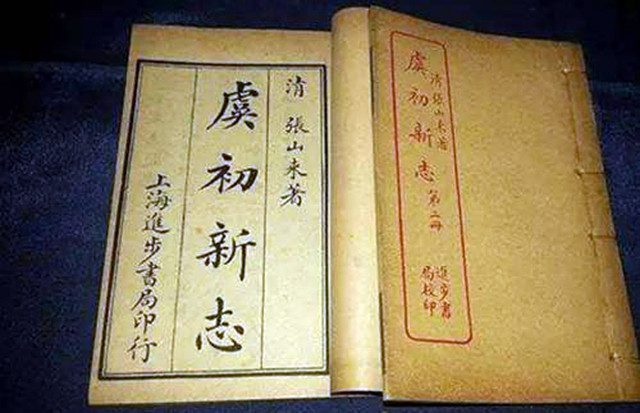 清 張山来著
虞初新志
上海進步書局印行
清張山来著
虞初新志 第二冊
進步書
局校印